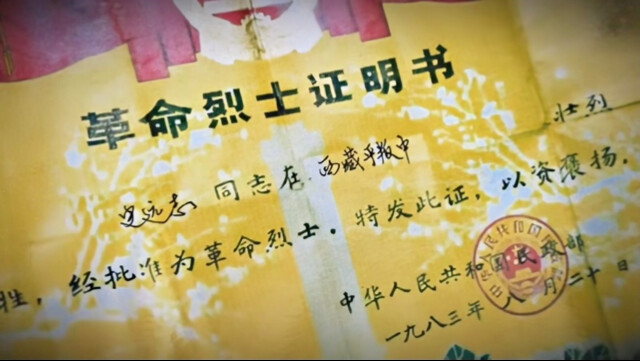 革命烈士证明书
史远志 同志在 西藏平叛中 壮烈
牲，经批准为革命烈士。特发此证，以资褒扬。
中华人民共和国民政部
一九八三年八月二十日